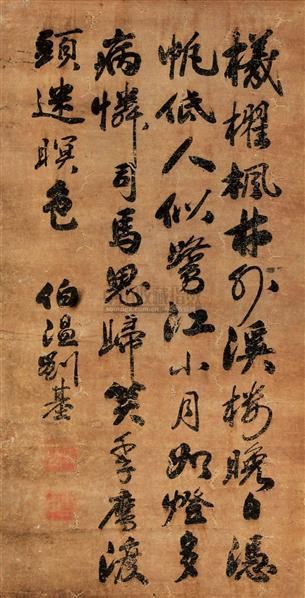 檥櫂楓林外溪樓晚日憑
帆低人似鷺江小月如燈多
病憐司馬思歸笑季鷹渡
頭迷暝色
伯溫劉基